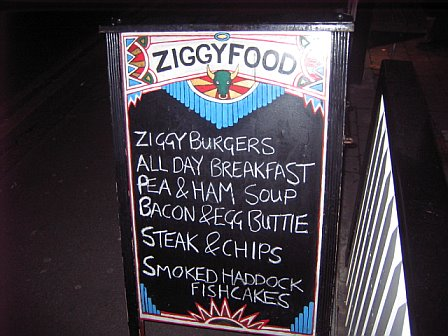 ZIGGYFOOD
ZIGGYBURGERS
ALL DAY BREAKFAST
PEA & HAM SOUP
BACON & EGG BUTTIE
STEAK & CHIPS
SMOKED HADDOCK
FISHCAKES